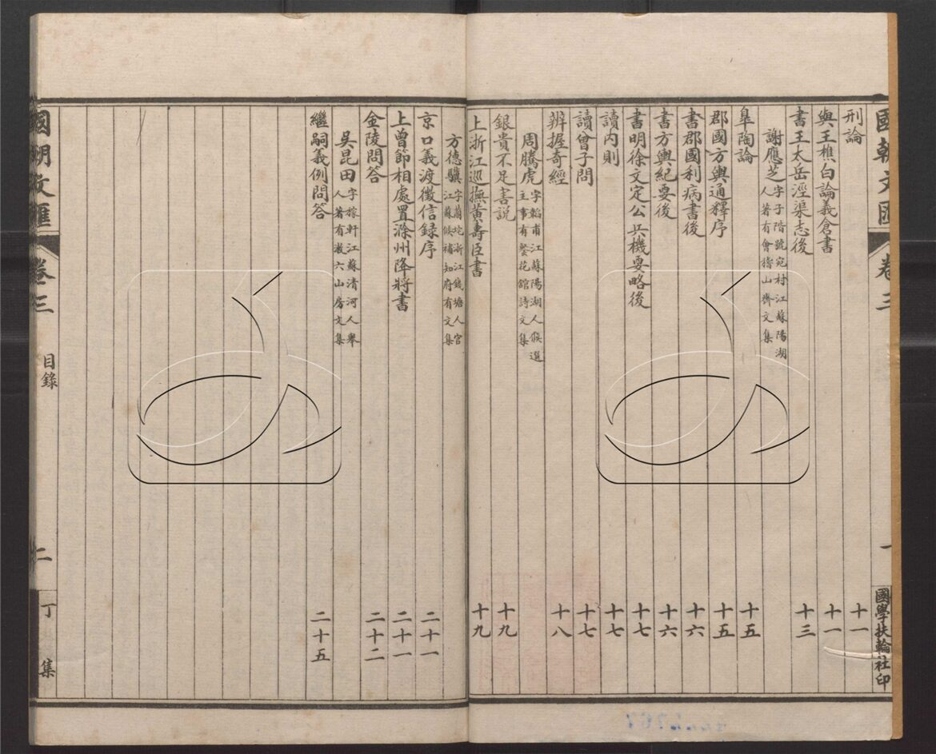 國朝文匯 卷三 一 國學扶輪社印
刑論 十一
與王樵白論義倉書 十一
書王太岳涇渠志後 十三
謝應芝 字子階號宛村江蘇陽湖人著有會稽山齋文集
皋陶論 十五
郡國方輿通釋序 十五
書郡國利病書後 十六
書方輿紀要後 十六
書明徐文定公兵機要略後 十七
讀內則 十七
讀曾子問 十七
辨握奇經 十八
周騰虎 字韜甫江蘇陽湖人候選主事有餐花館詩文集
銀貴不足害說 十九
上浙江巡撫黃壽臣書 十九
方德驥 江浙江錢塘人官江蘇候補知府有文集
京口義渡徵信録序 二十一
上曾節相處置滁州降將書 二十一
金陵問答 二十二
吳昆田 字稼軒江蘇清河人舉人著有漱六山房文集
繼嗣義例問答 二十五
國朝文匯 卷三 目錄 二 丁集